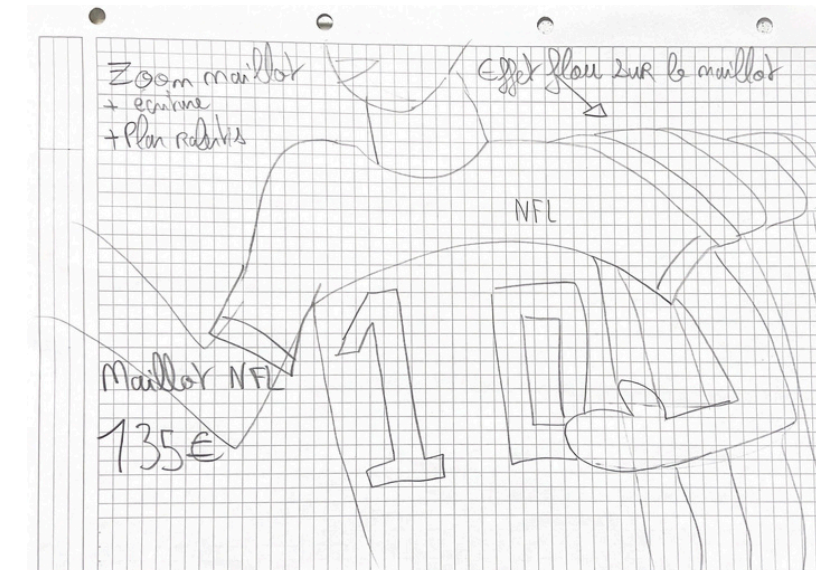 Zoom maillot
+ écriture
+ Plan ralentis
Effet flou sur le maillot
NFL
10
Maillot NFL
135€